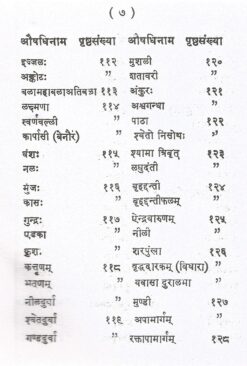 ( ७ )
औषधिनाम पृष्ठसंख्या औषधिनाम पृष्ठसंख्या
इज्जलः ११२ मुशली १२०
अङ्कोटः ” शतावरी ”
बलामहाबलाअतिबला ११३ अंकुरः १२१
लक्ष्मणा ११४ अश्वगन्धा ”
स्वर्णवल्ली ” पाठा १२२
कार्पासी (बेनौर) ” श्वेतो निसोथः ”
वंशः ११५ श्यामा त्रिवृत् १२३
नलः ” लघुदंती ”
मुंजः ११६ बृहद्दन्ती १२४
कासः ” बृहद्दन्तीफलम् ”
गुन्द्रः ११७ ऐन्द्रवारुणम् १२५
एडका ” नीली ”
कुशा ” शरपुंखा १२६
कत्तृणम् ११८ वृद्धदारकम् (विधारा) ”
भूतृणम् ” यवासा दुरालभा ”
नीलदुर्वा ” मुण्डी १२७
श्वेतदुर्वा ११९ अपामार्गम् ”
गण्डदुर्वा ” रक्तापामार्गम् १२८